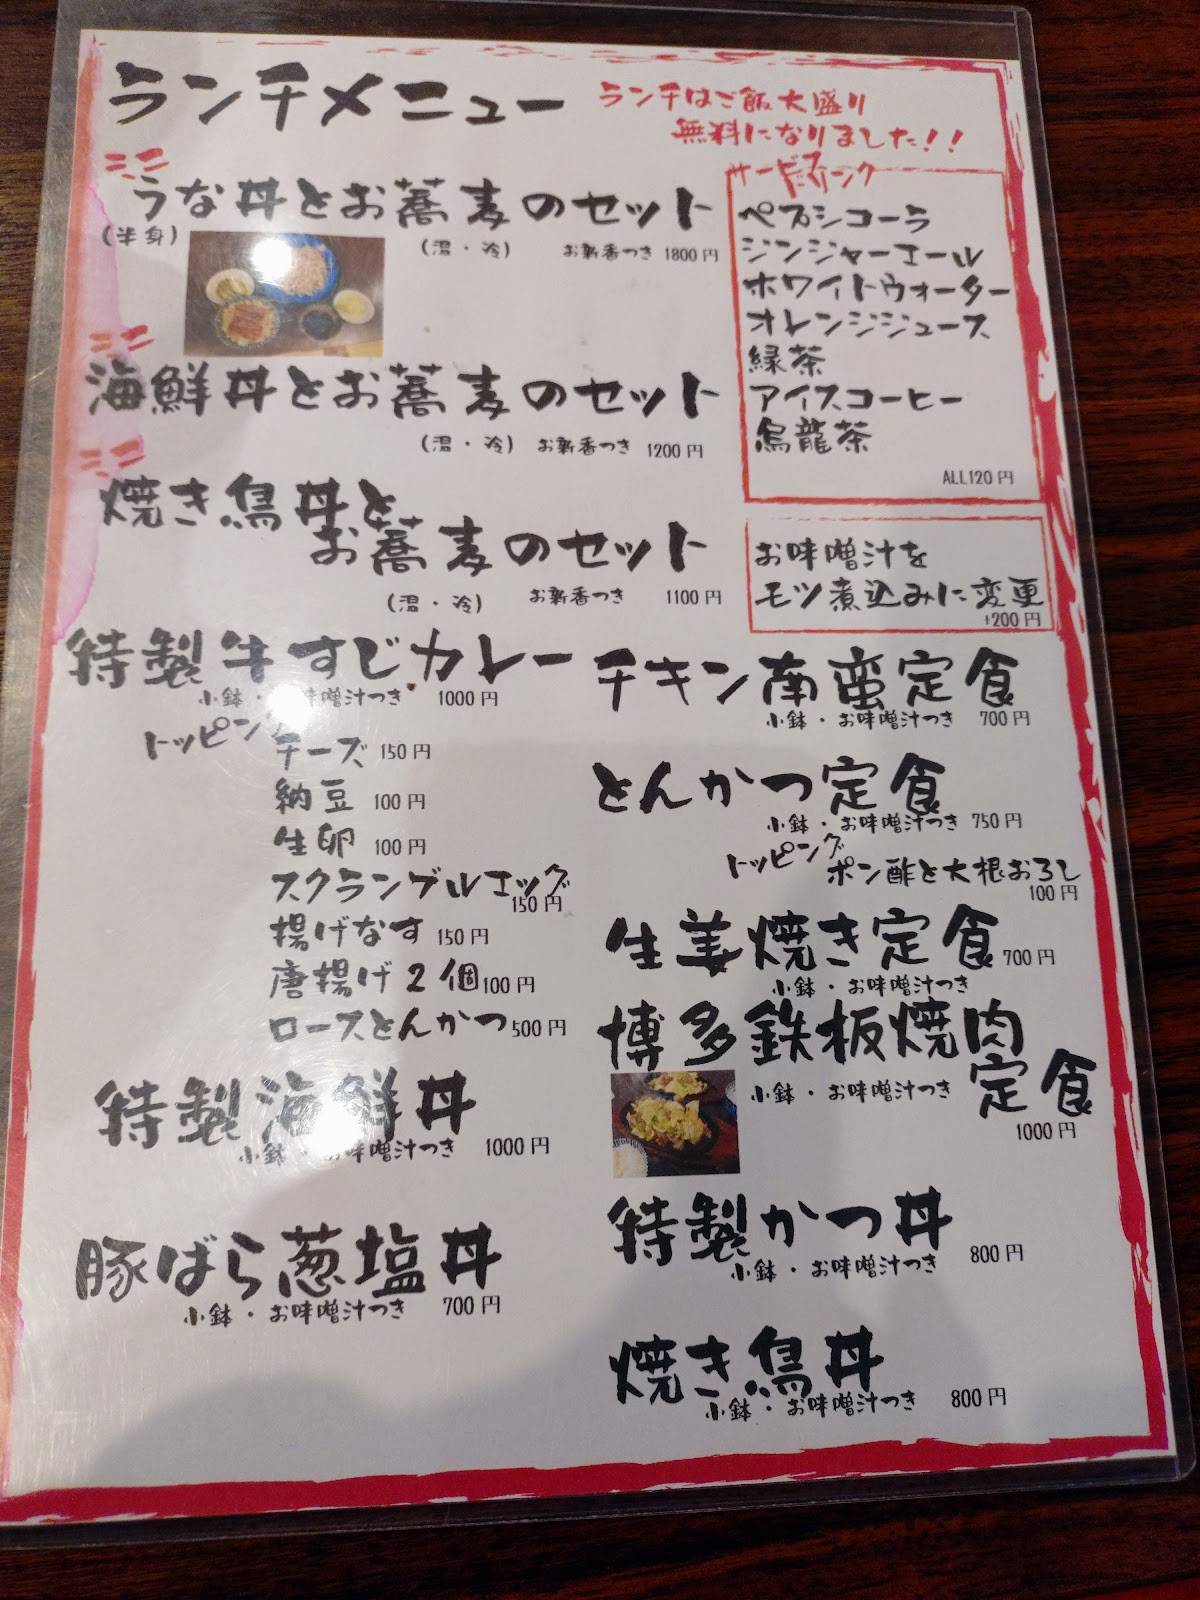 ランチメニュー
ランチはご飯大盛り
無料になりました!!
ミニ
うな丼とお蕎麦のセット
(半身)
(温・冷) お新香つき 1800円
ミニ
海鮮丼とお蕎麦のセット
(温・冷) お新香つき 1200円
ミニ
焼き鳥丼と
お蕎麦のセット
(温・冷) お新香つき 1100円
サービスドリンク
ペプシコーラ
ジンジャーエール
ホワイトウォーター
オレンジジュース
緑茶
アイスコーヒー
烏龍茶
ALL120円
お味噌汁を
モツ煮込みに変更
+200円
特製牛すじカレー
小鉢・お味噌汁つき 1000円
トッピング
チーズ 150円
納豆 100円
生卵 100円
スクランブルエッグ
150円
揚げなす 150円
唐揚げ2個 100円
ロースとんかつ 500円
特製海鮮丼
小鉢・お味噌汁つき 1000円
豚ばら葱塩丼
小鉢・お味噌汁つき 700円
チキン南蛮定食
小鉢・お味噌汁つき 700円
とんかつ定食
小鉢・お味噌汁つき 750円
トッピング
ポン酢と大根おろし
100円
生姜焼き定食 700円
小鉢・お味噌汁つき
博多鉄板焼肉
定食
小鉢・お味噌汁つき
1000円
特製かつ丼
小鉢・お味噌汁つき 800円
焼き鳥丼
小鉢・お味噌汁つき 800円